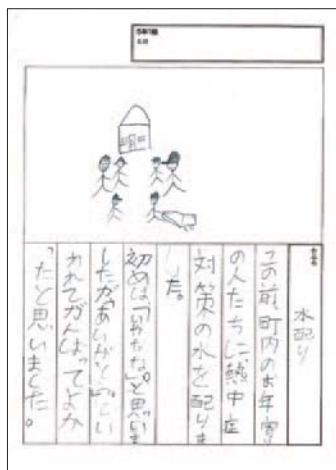 5年1組
名前
水配り
この前、町内のお年寄
の人たちに熱中症
対策の水を配りま
した。
初めは「いやだな」。と思いま
したが「ありがとう」。とい
われてがんばってよか
ったと思いました。